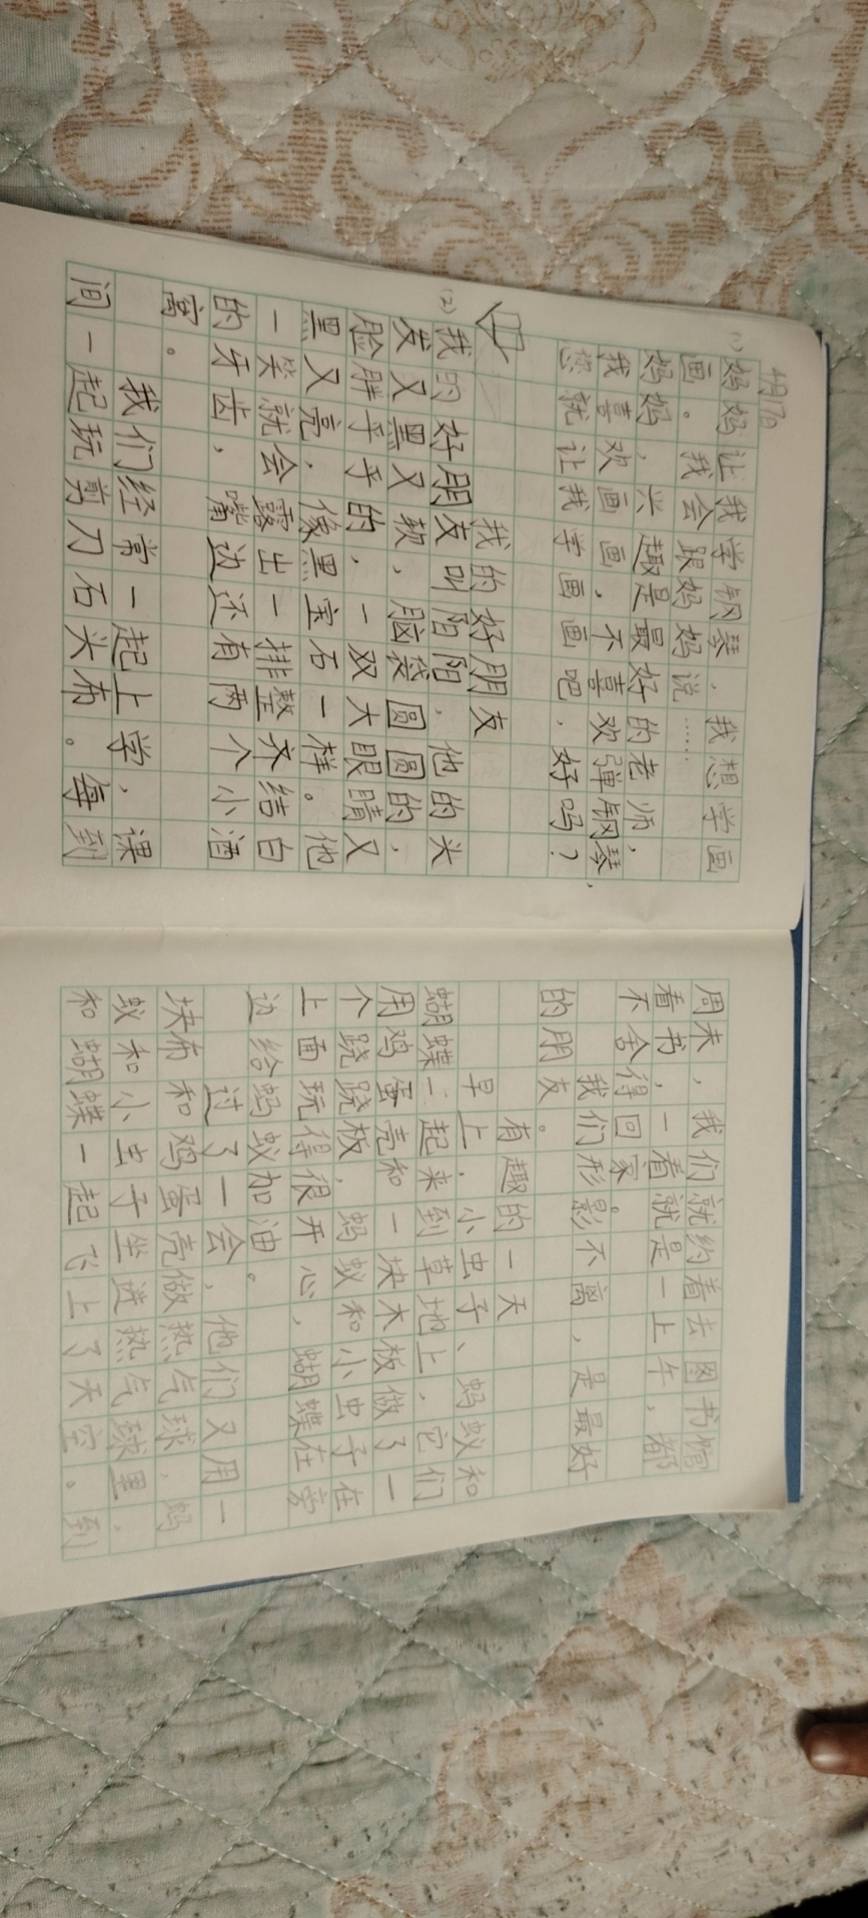 4月17日
(1) 妈妈让我学钢琴，我想学画
画。我会跟妈妈说……
妈妈，兴趣是最好的老师，
我喜欢画画，不喜欢弹钢琴，
您就让我学画画吧，好吗？
我的好朋友
(2) 我的好朋友叫阳阳，他的头
发又黑又软，脑袋圆圆的，
脸胖乎乎的，一双大眼睛又
黑又亮，像黑宝石一样。他
一笑就会露出一排整齐结白
的牙齿，嘴边还有两个小酒
窝。
我们经常一起上学，课
间一起玩剪刀石头布。每到
周末，我们就约着去图书馆
看书，一看就是一上午，都
不舍得回家。
我们形影不离，是最好
的朋友。
有趣的一天
早上，小虫子、蚂蚁和
蝴蝶一起来到草地上，它们
用鸡蛋壳和一块木板做了一
个跷跷板，蚂蚁和小虫子在
上面玩得很开心，蝴蝶在旁
边给蚂蚁加油。
过了一会，他们又用一
块布和鸡蛋壳做热气球，蚂
蚁和小虫子坐进热气球里，
和蝴蝶一起飞上了天空。到